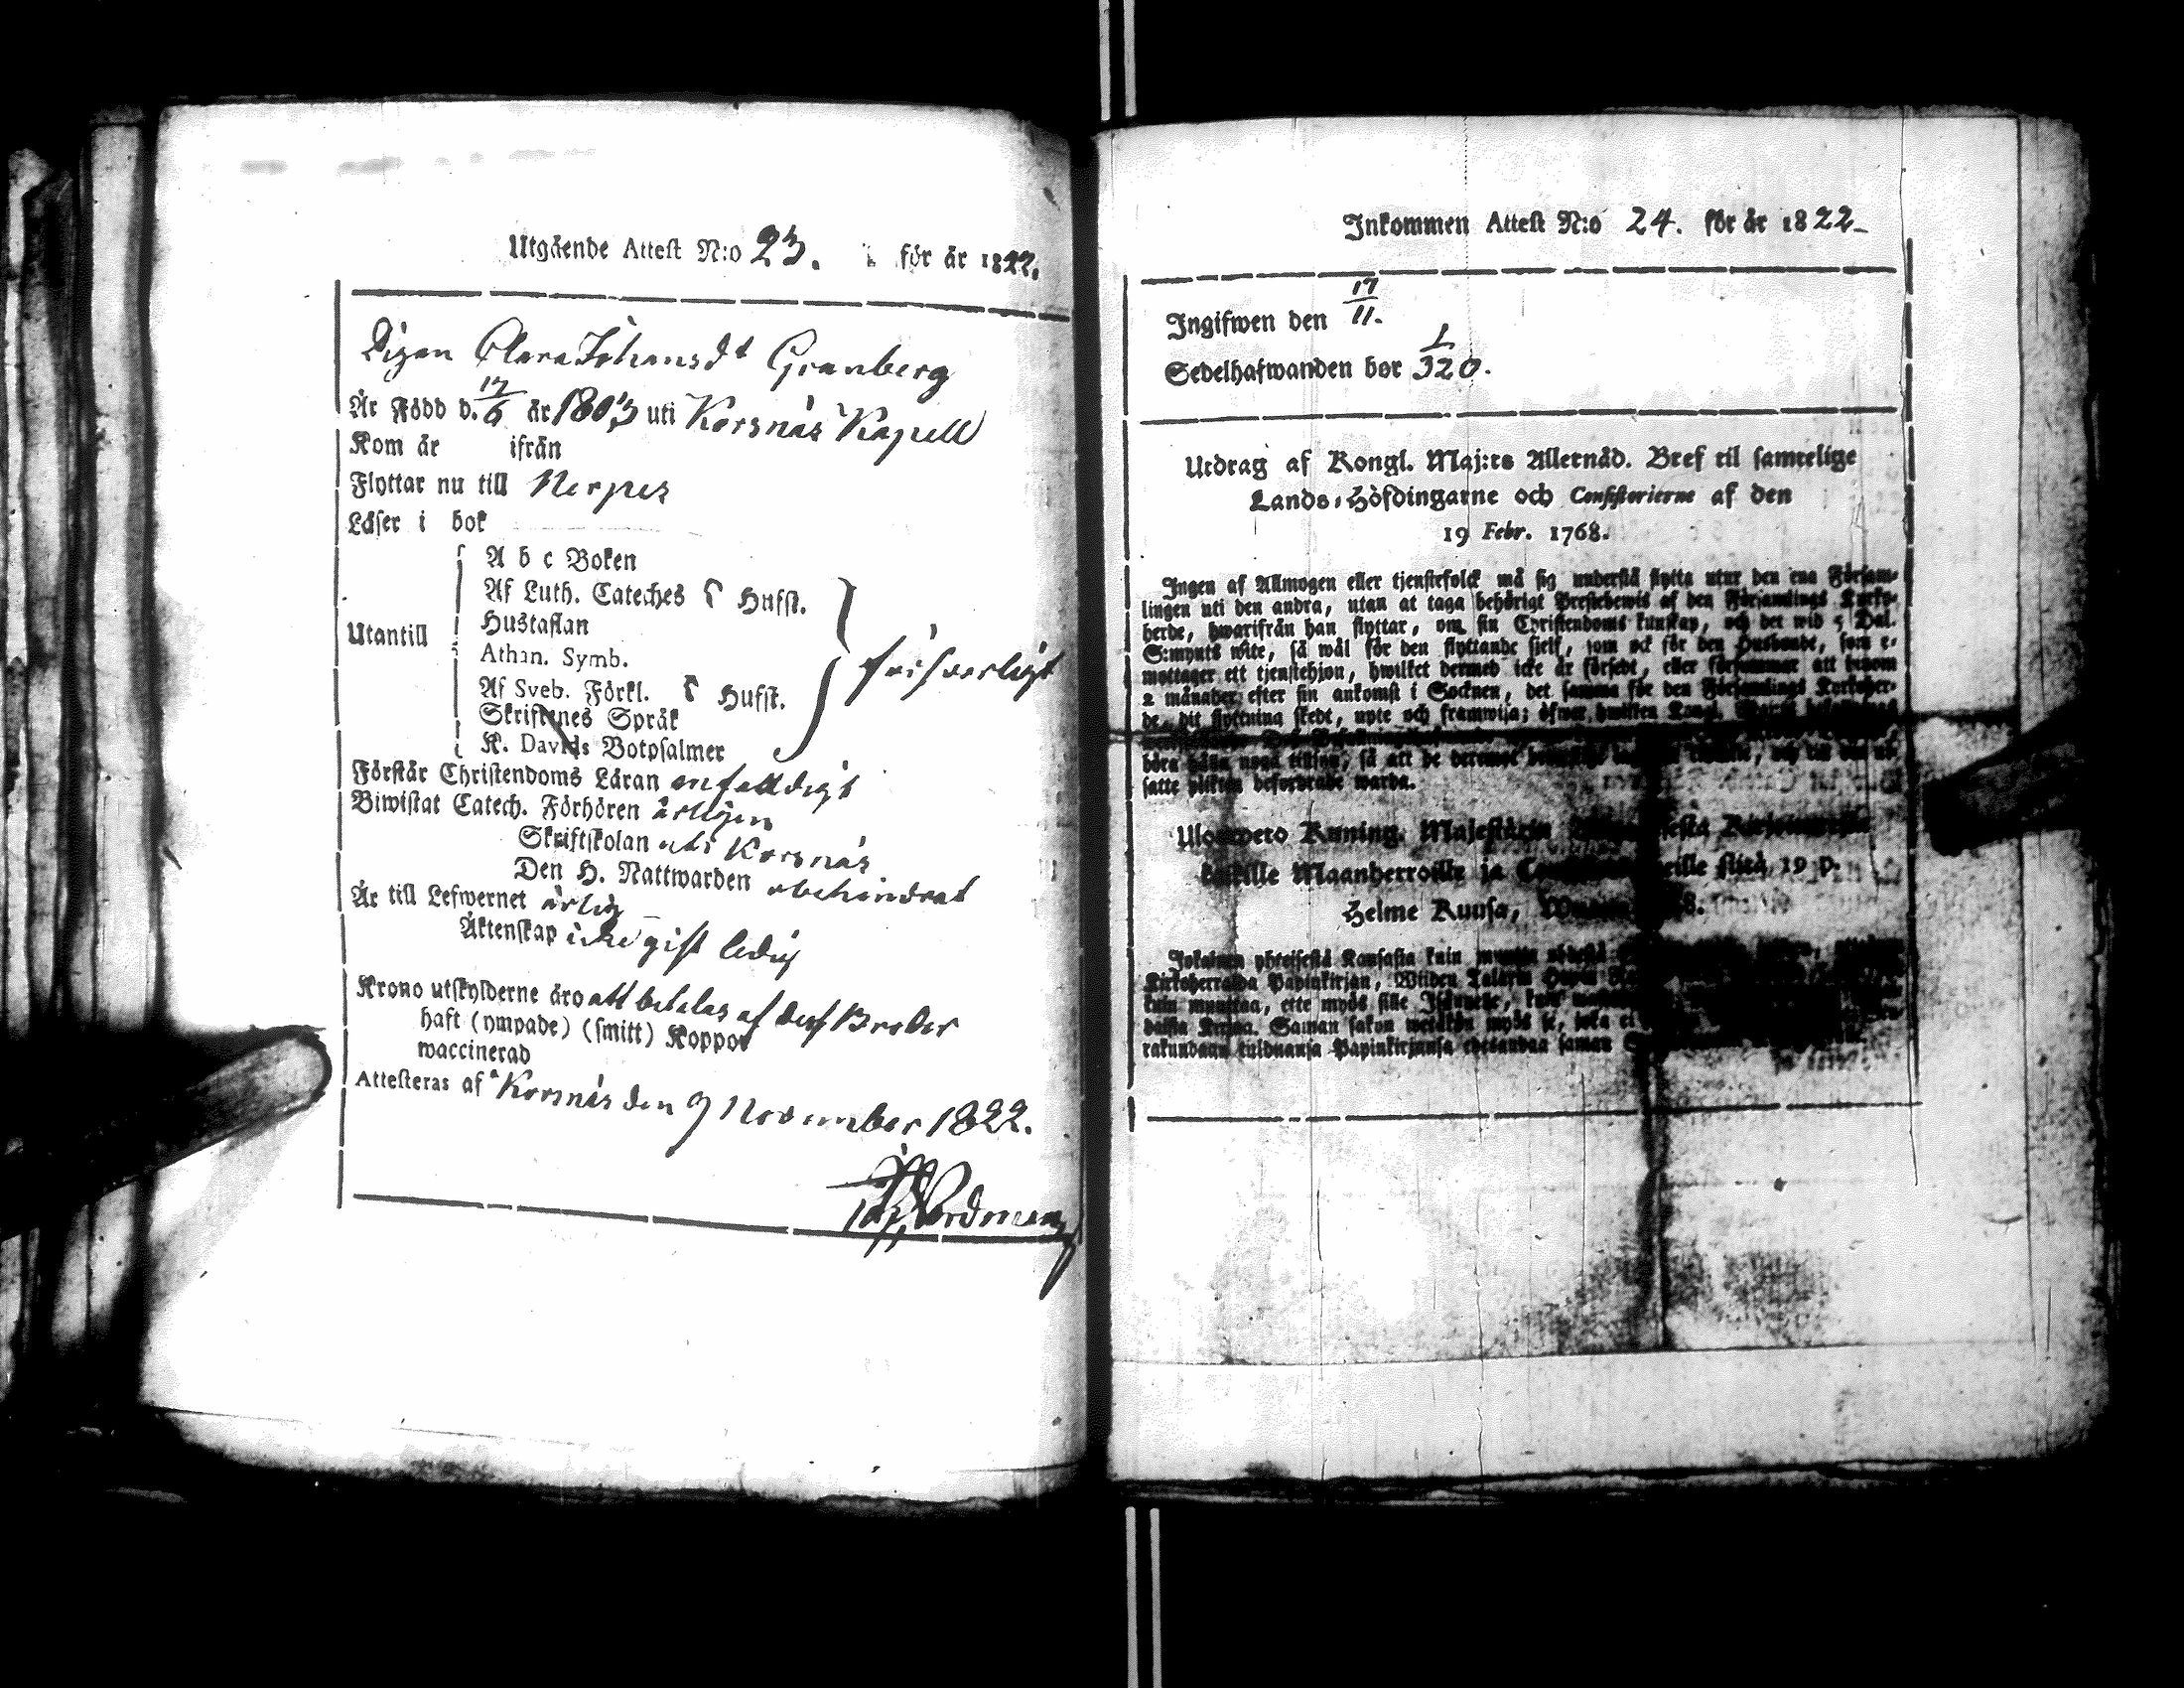 Utgående Attest N:o 23. för år 1822.
Pigan Clara Johansdt Granberg
År Född d. 17/6 år 1803 uti Korsnäs Kapell
Kom år ifrån
Flyttar nu till Nerpes
Läser i bok
A b c Boken
Af Luth. Cateches Husst.
Hustaflan
Utantill
Athan. Symb.
Af Sveb. Förkl. Husst.
Skriftenes Språk
K. Davids Botpsalmer
försvarligt
Förstår Christendoms Läran enfaldigt
Biwistat Catech. Förhören årligen
Skriftskolan uti Korsnäs
Den H. Nattwarden obehindrat
Är till Lefwernet ärlig
Äktenskap icke gift ledig
Krono utskylderne äro att betalas af dess Broder
haft (ympade) (smitt) Koppor
waccinerad
Attesteras af Korsnäs den 9 November 1822.
Nordman
Inkommen Attest N:o 24. för år 1822
Ingifwen den 17/11.
Sedelhafwanden bor 1/320.
Utdrag af Kongl. Maj:ts Allernåd. Bref til samtelige
Lands-Höfdingarne och Consistorierne af den
19 Febr. 1768.
Ingen af Allmogen eller tjenstefolck må sig understå flytta utur den ena Försam-
lingen uti den andra, utan at taga behörigt Prestebewis af den Församlings Kyrko-
herde, hwarifrån han flyttar, om sin Christendoms kunskap, och det wid 5 Dal.
S:mynts wite, så wäl för den flyttande sielf, som ock för den Husbonde, som e-
mottager ett tjenstehjon, hwilket dermed icke är försedt, eller försummar att innom
2 månader efter sin ankomst i Socknen, det samma för den Församlings Kyrkoher-
de, dit flyttning skedt, upte och framwisa; öfwer hwilken Kongl.
böra hålla noga
satte plikten befordrade warda.
Kuning. Majestätin
kaikille Maanherroille ja stitä 19 p.
Helme Kuusa,
Jokainen yhteisestä Kansasta kuin
Kirkoherralda Papinkirjan, Wiiden Talarin
kuin muuttaa, ette myös sille Isännelle, kuin
daista Kirjaa. Saman sakon myös se, joka ei
rakundaan Papinkirjansa saman